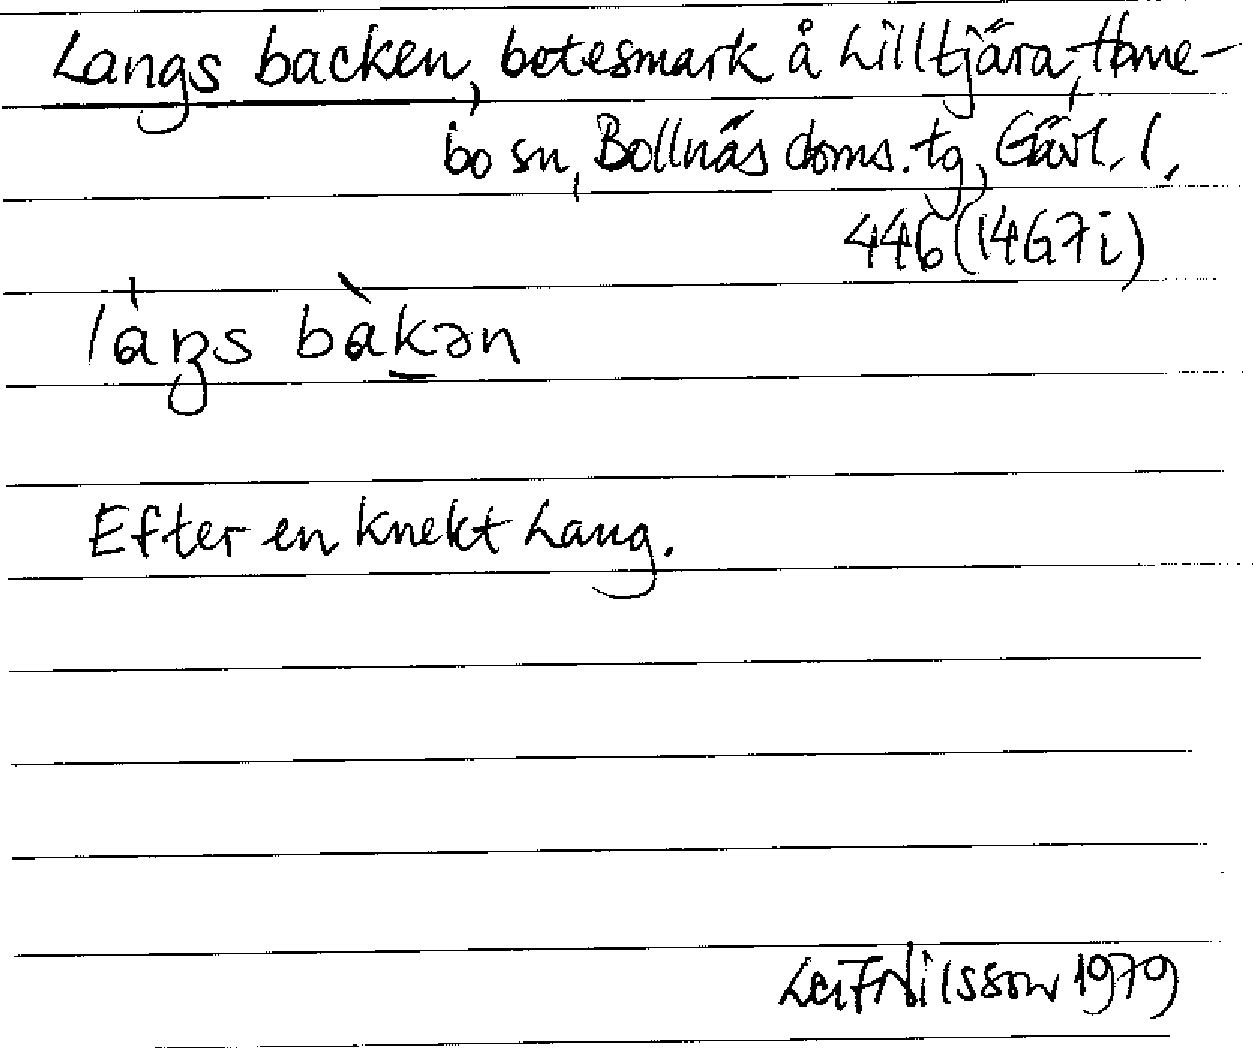 Langs backen, betesmark å Lilltjära, Home-
bo sn, Bollnäs doms. tg, Gävl. l.
446 (1467i)
Efter en knekt Lang.
Leif Nilsson 1979